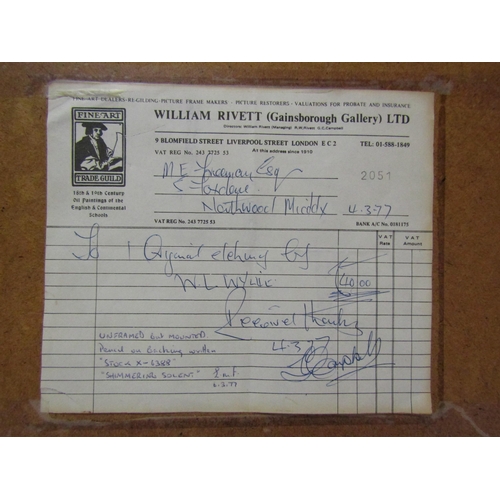 FINE ART DEALERS-RE-GILDING-PICTURE FRAME MAKERS - PICTURE RESTORERS - VALUATIONS FOR PROBATE AND INSURANCE
FINE ART
TRADE GUILD
18th & 19th Century
Oil Paintings of the
English & Continental
Schools
WILLIAM RIVETT (Gainsborough Gallery) LTD
Directors: William Rivett (Managing)
9 BLOMFIELD STREET LIVERPOOL STREET LONDON E C 2
TEL: 01-588-1849
VAT REG No. 243 7725 53
At this address since 1910
M E Foreman Esq
2051
Northwood Middx
4.3.77
VAT REG No. 243 7725 53
BANK A/C No. 0181175
VAT
Rate
VAT
Amount
To 1 Original etching by
W.L WYLLIE
£40.00
Received Thanks
4.3.77
UNFRAMED but MOUNTED
Pencil on Etching written
"STOCK X-6388"
"SHIMMERING SOLENT"
6.3.77